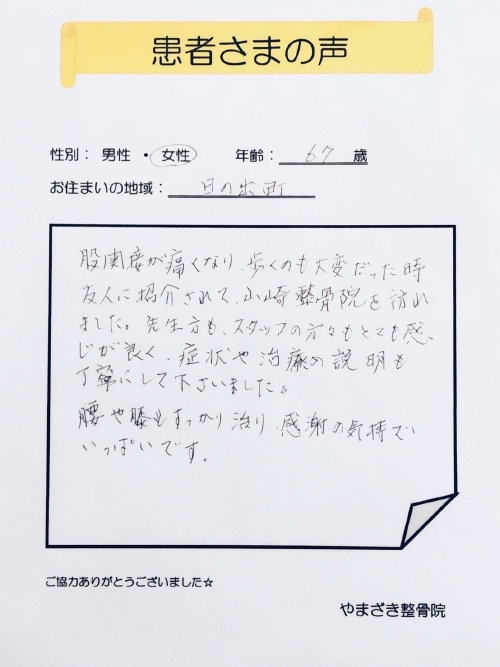 患者さまの声
性別： 男性 ・ 女性 年齢： 67 歳
お住まいの地域： 日の出町
股関接が痛くなり、歩くのも大変だった時
友人に紹介されて、山崎整骨院を訪れ
ました。先生方も、スタッフの方々もとても感
じが良く、症状や治療の説明も
丁寧にして下さいました。
腰や膝もすっかり治り、感謝の気持で
いっぱいです。
ご協力ありがとうございました☆
やまざき整骨院